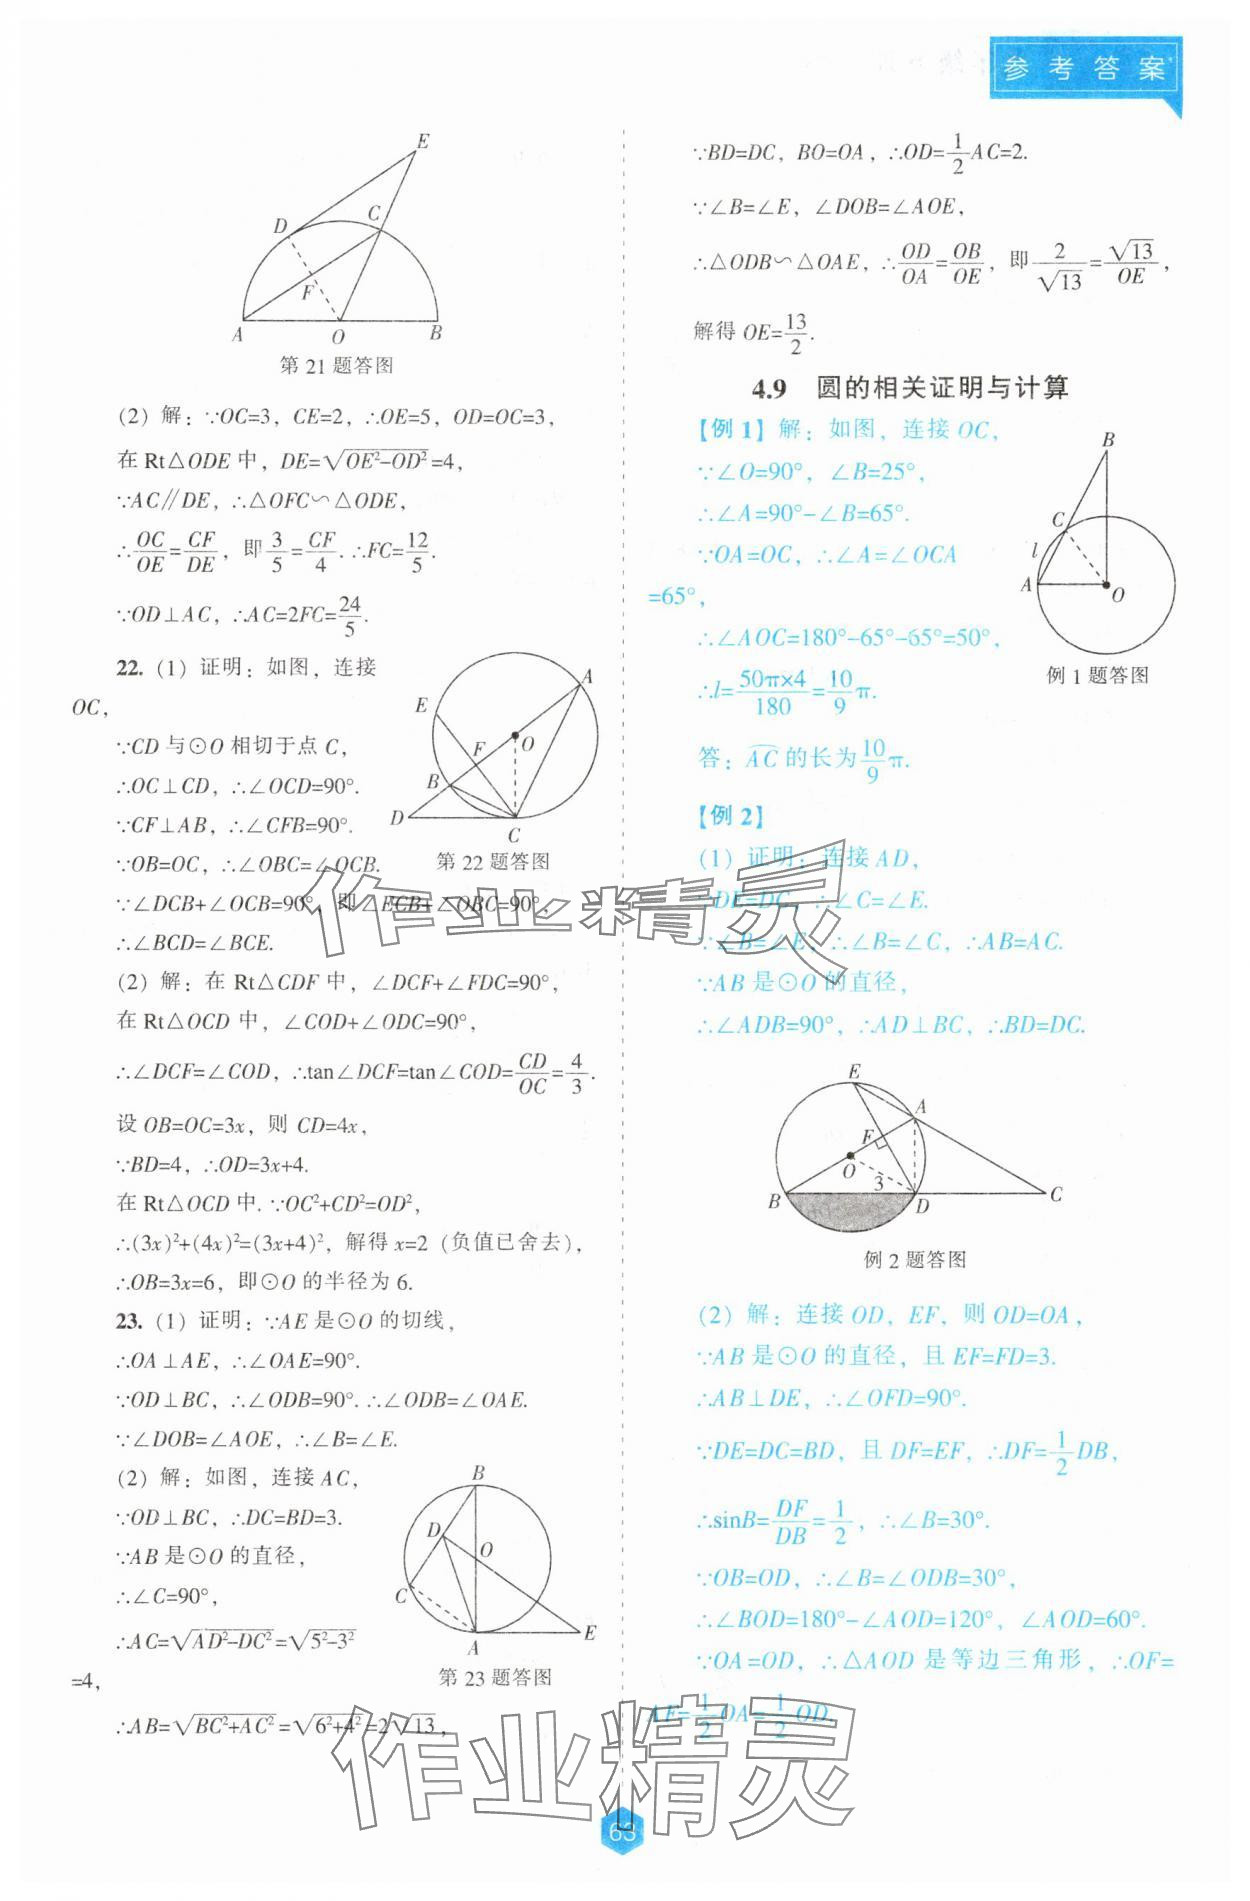 参考答案
E
D
C
F
A
O
B
第 21 题答图
(2) 解：∵OC=3，CE=2，∴OE=5，OD=OC=3，
在 Rt△ODE 中，DE=√(OE²-OD²)=4，
∵AC∥DE，∴△OFC∽△ODE，
∴OC/OE=CF/DE，即 3/5=CF/4. ∴FC=12/5.
∵OD⊥AC，∴AC=2FC=24/5.
22. (1) 证明：如图，连接
OC，
∵CD 与⊙O 相切于点 C，
∴OC⊥CD，∴∠OCD=90°.
∵CF⊥AB，∴∠CFB=90°.
∵OB=OC，∴∠OBC=∠OCB.
∵∠DCB+∠OCB=90°，即∠ECB+∠OBC=90°，
∴∠BCD=∠BCE.
A
E
F
O
B
D
C
第 22 题答图
(2) 解：在 Rt△CDF 中，∠DCF+∠FDC=90°，
在 Rt△OCD 中，∠COD+∠ODC=90°，
∴∠DCF=∠COD，∴tan∠DCF=tan∠COD=CD/OC=4/3.
设 OB=OC=3x，则 CD=4x，
∵BD=4，∴OD=3x+4.
在 Rt△OCD 中. ∵OC²+CD²=OD²，
∴(3x)²+(4x)²=(3x+4)²，解得 x=2（负值已舍去），
∴OB=3x=6，即⊙O 的半径为 6.
23. (1) 证明：∵AE 是⊙O 的切线，
∴OA⊥AE，∴∠OAE=90°.
∵OD⊥BC，∴∠ODB=90°. ∴∠ODB=∠OAE.
∵∠DOB=∠AOE，∴∠B=∠E.
(2) 解：如图，连接 AC，
∵OD⊥BC，∴DC=BD=3.
∵AB 是⊙O 的直径，
∴∠C=90°，
∴AC=√(AD²-DC²)=√(5²-3²)
=4，
∴AB=√(BC²+AC²)=√(6²+4²)=2√13，
B
D
O
C
A
E
第 23 题答图
∵BD=DC，BO=OA，∴OD=1/2AC=2.
∵∠B=∠E，∠DOB=∠AOE，
∴△ODB∽△OAE，∴OD/OA=OB/OE，即 2/√13=√13/OE，
解得 OE=13/2.
4.9 圆的相关证明与计算
【例 1】解：如图，连接 OC，
∵∠O=90°，∠B=25°，
∴∠A=90°-∠B=65°.
∵OA=OC，∴∠A=∠OCA
=65°，
∴∠AOC=180°-65°-65°=50°，
∴l=50π×4/180=10/9π.
答：AC⌒ 的长为10/9π.
B
C
l
A
O
例 1 题答图
【例 2】
(1) 证明：连接 AD，
∵DE=DC，∴∠C=∠E.
∵∠B=∠E，∴∠B=∠C，∴AB=AC.
∵AB 是⊙O 的直径，
∴∠ADB=90°，∴AD⊥BC，∴BD=DC.
E
A
F
O
3
B
D
C
例 2 题答图
(2) 解：连接 OD，EF，则 OD=OA，
∵AB 是⊙O 的直径，且 EF=FD=3.
∴AB⊥DE，∴∠OFD=90°.
∵DE=DC=BD，且 DF=EF，∴DF=1/2DB，
∴sinB=DF/DB=1/2，∴∠B=30°.
∵OB=OD，∴∠B=∠ODB=30°，
∴∠BOD=180°-∠AOD=120°，∠AOD=60°.
∵OA=OD，∴△AOD 是等边三角形，∴OF=
AF=1/2OA=1/2OD，
作业精灵
作业精灵
63